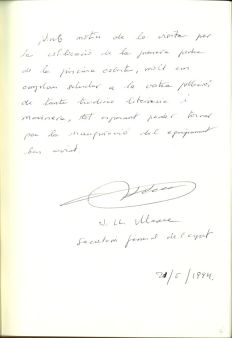 Amb motiu de la visita per
la col·locació de la primera pedra
de la piscina coberta, molt em
complau saludar a la vostra població
de tanta tradició literària i
marinera, tot esperant poder tornar
per la inauguració del equipament
ben aviat.
J. Ll. Vilaseca
Secretari general de l'esport
21/5/1994.